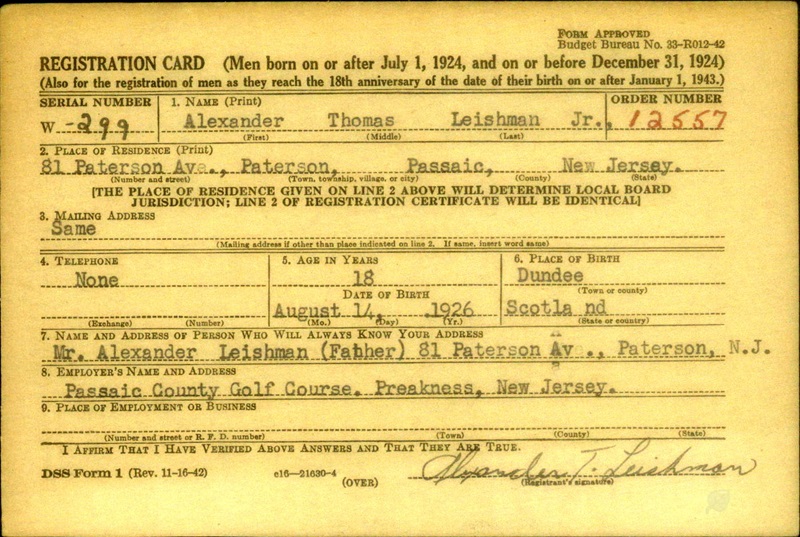 FORM APPROVED
Budget Bureau No. 33-R012-42
REGISTRATION CARD (Men born on or after July 1, 1924, and on or before December 31, 1924)
(Also for the registration of men as they reach the 18th anniversary of the date of their birth on or after January 1, 1943.)
SERIAL NUMBER 1. NAME (Print) ORDER NUMBER
W -299 Alexander Thomas Leishman Jr., 12557
(First) (Middle) (Last)
2. PLACE OF RESIDENCE (Print)
81 Paterson Ave., Paterson, Passaic, New Jersey.
(Number and street) (Town, township, village, or city) (County) (State)
[THE PLACE OF RESIDENCE GIVEN ON LINE 2 ABOVE WILL DETERMINE LOCAL BOARD
JURISDICTION; LINE 2 OF REGISTRATION CERTIFICATE WILL BE IDENTICAL]
3. MAILING ADDRESS
Same
(Mailing address if other than place indicated on line 2. If same, insert word same)
4. TELEPHONE 5. AGE IN YEARS 6. PLACE OF BIRTH
None 18 Dundee
DATE OF BIRTH (Town or county)
August 14, .1926 Scotla nd
(Exchange) (Number) (Mo.) (Day) (Yr.) (State or country)
7. NAME AND ADDRESS OF PERSON WHO WILL ALWAYS KNOW YOUR ADDRESS
Mr. Alexander Leishman (Father) 81 Paterson Av ., Paterson, N.J.
8. EMPLOYER'S NAME AND ADDRESS
Passaic County Golf Course. Preakness, New Jersey.
9. PLACE OF EMPLOYMENT OR BUSINESS
(Number and street or R. F. D. number) (Town) (County) (State)
I AFFIRM THAT I HAVE VERIFIED ABOVE ANSWERS AND THAT THEY ARE TRUE.
DSS Form 1 (Rev. 11-16-42) c16—21630-4 Alexander T. Leishman
(OVER) (Registrant's signature)